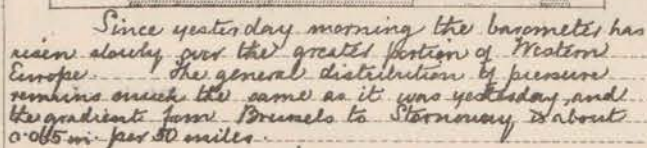 Since yesterday morning the barometer has
risen slowly over the greater portion of Western
Europe. The general distribution of pressure
remains much the same as it was yesterday, and
the gradient from Brussels to Stornoway is about
0.065 in. per 50 miles.